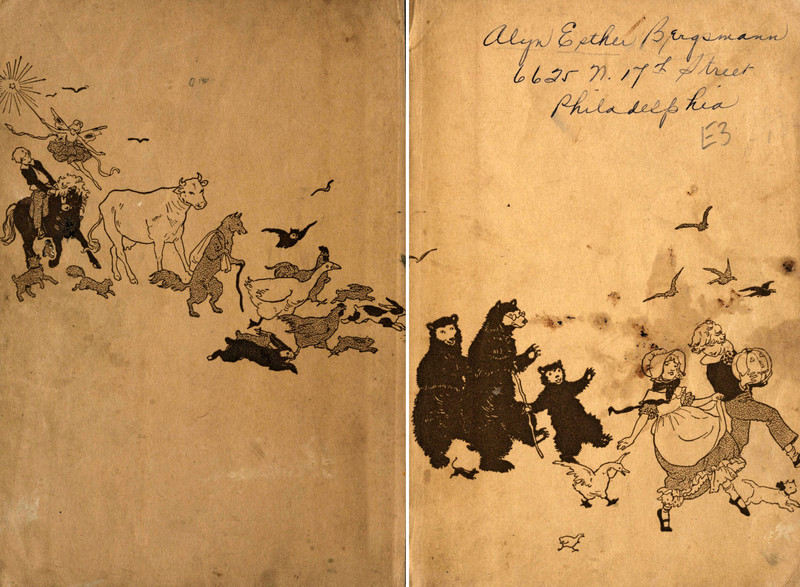 Alyn Esther Bergsmann
6625 N. 17th Street
Philadelphia
E3